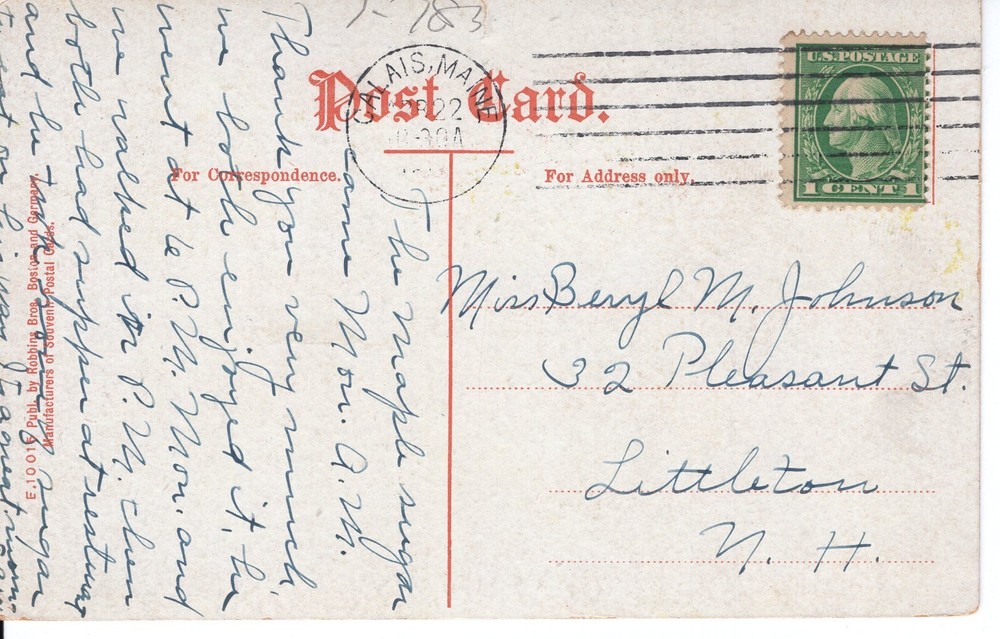 7-783
Post Card.
CALAIS, MAINE
22
30 A
U.S. POSTAGE
1 CENT 1
For Correspondence.
For Address only.
The maple sugar
came Mon. A.M.
Thank you very much
we both enjoyed it.
went at 6 P.M. Mon. and
we walked in P.M. then
both had supper at
and he
Miss Beryl M. Johnson
32 Pleasant St.
Littleton
N. H.
E. 10016 Publ. by Robbins Bros. Boston and Germany.
Manufacturers of Souvenir Postal Cards.